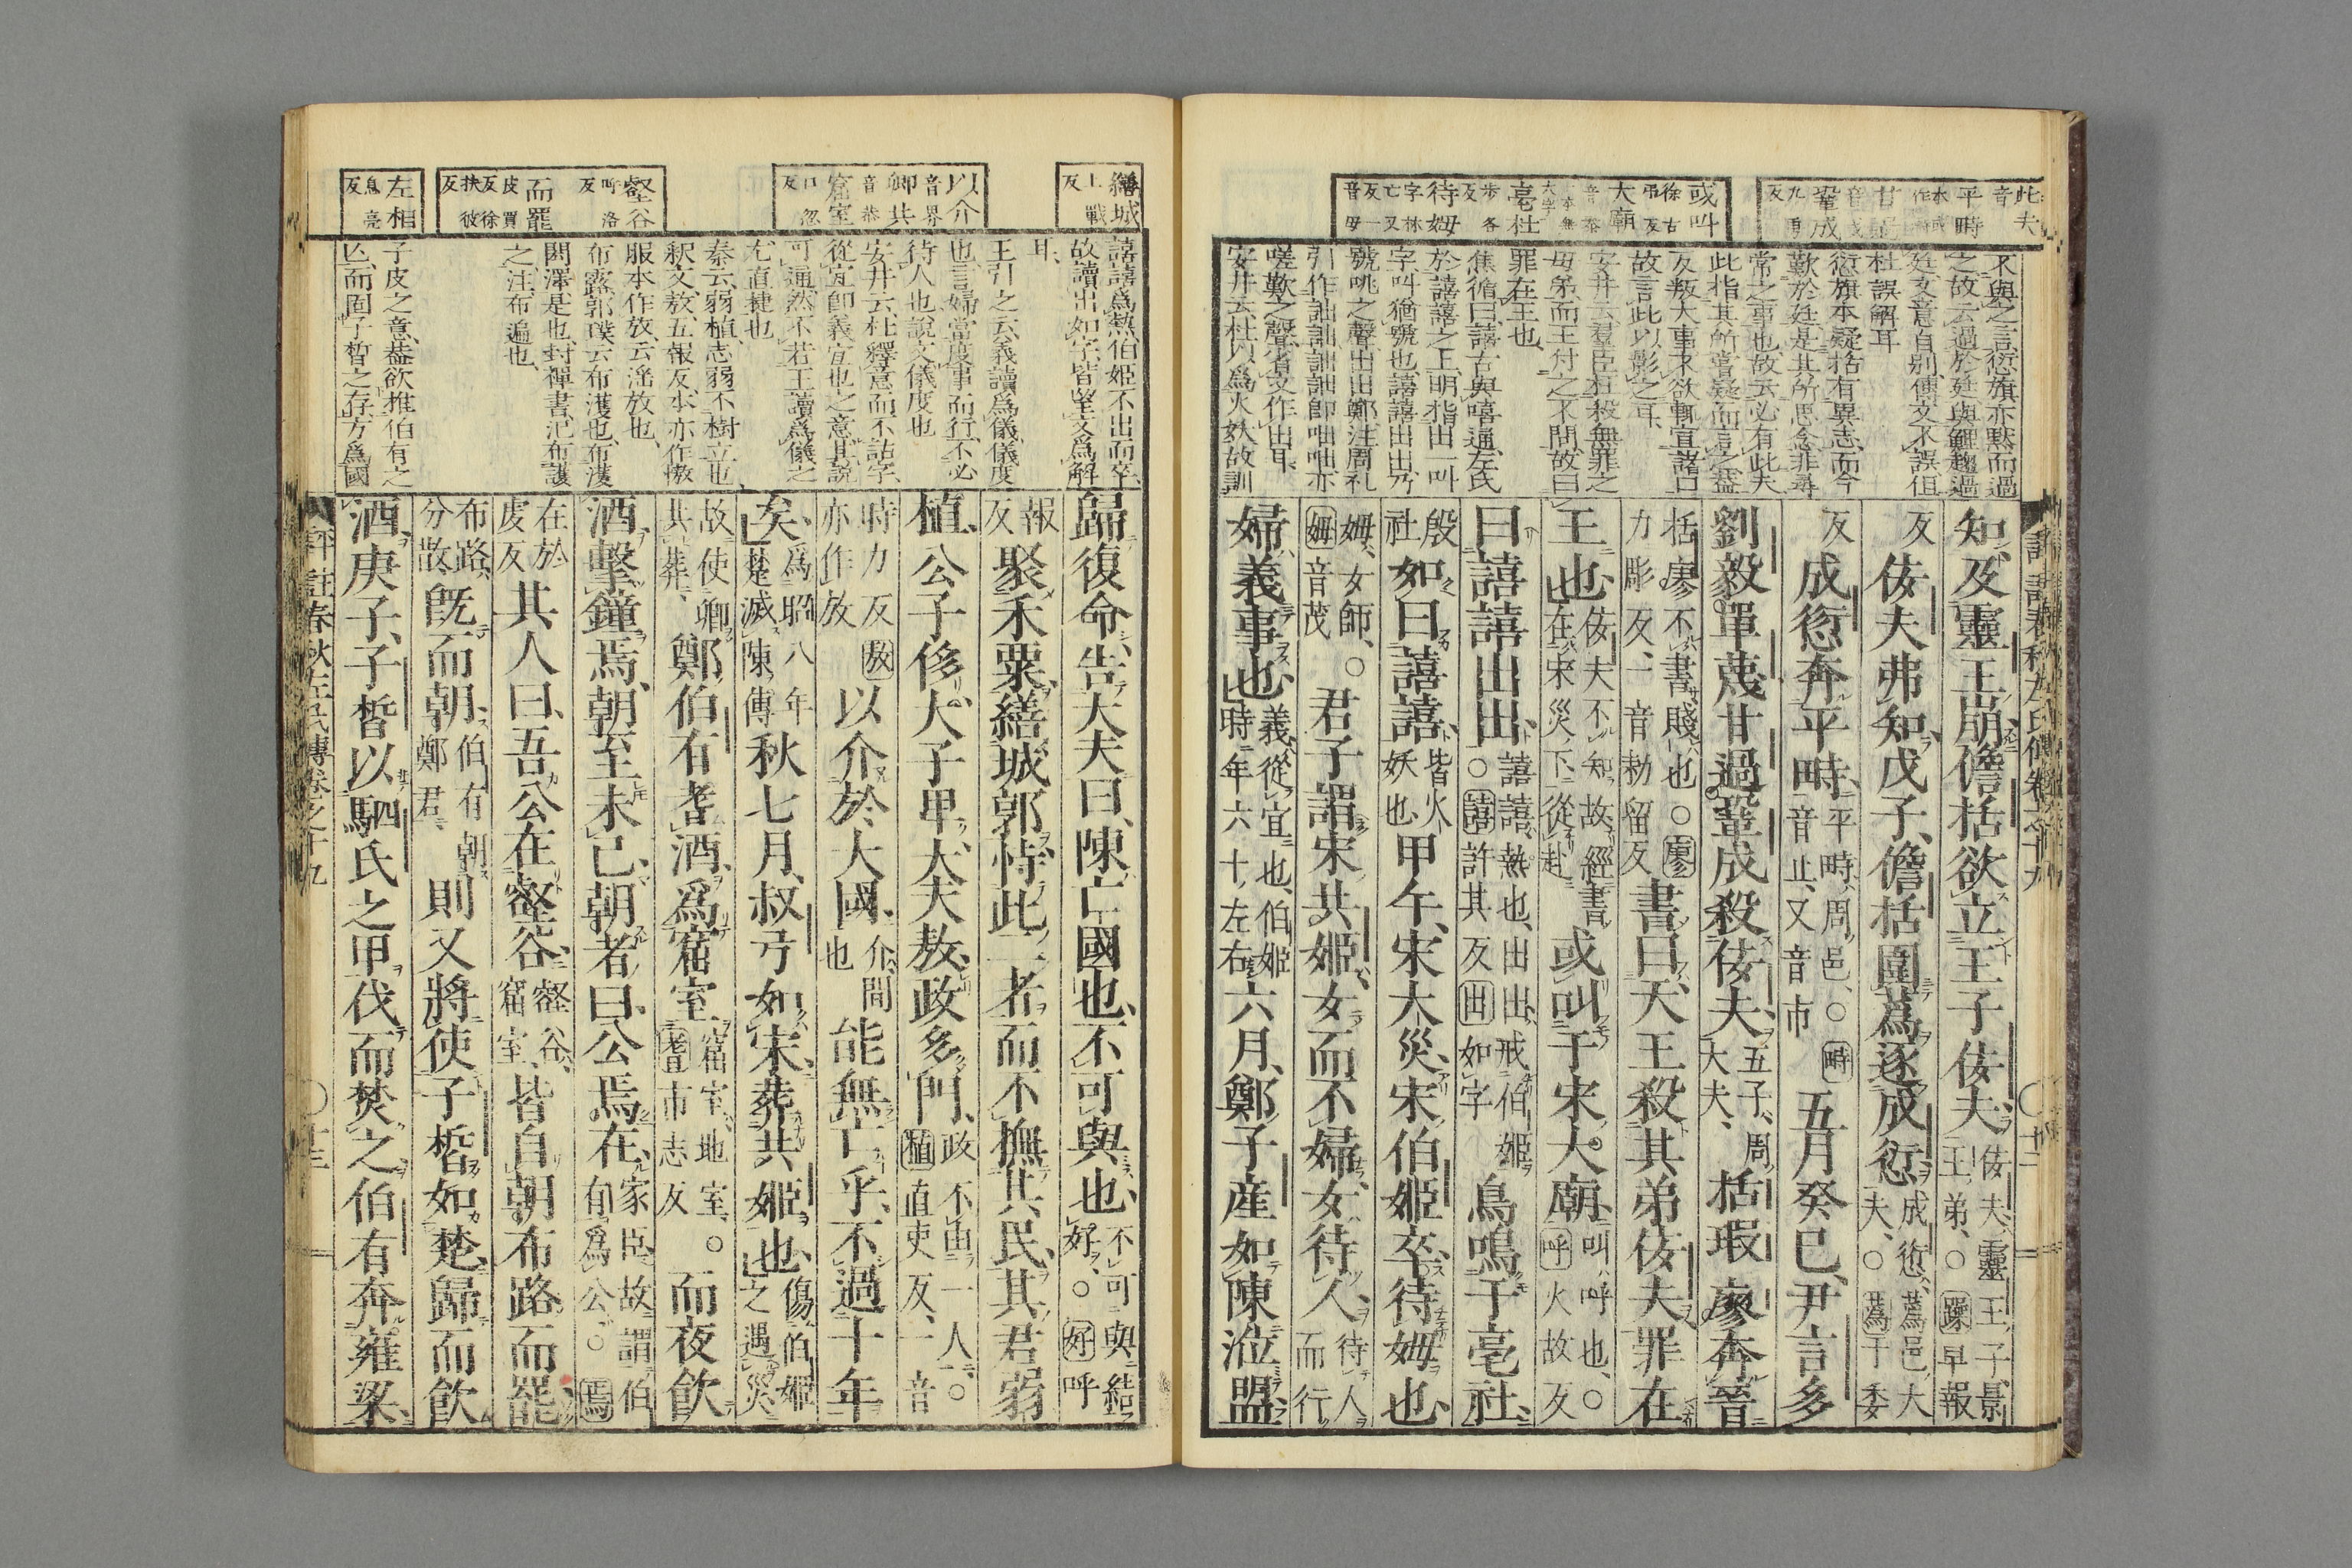 此夫
音
平時
本或
作
甘過
音戈
鞏成
九勇
反
或叫
徐古
吊反
大廟
音泰
本無
大字
亳社
步各
反
待姆
字林
亡又
反一
音母
不與之言愆旗亦默而過
之故云過於廷與鯉趨過
廷文意自別傳文不誤但
杜誤解耳
愆旗本疑括有異志而今
歎於廷是其所思念非尋
常之事也故云必有此夫
此指其所嘗疑而言之蓋
反叛大事不欲輒宣諸口
故言此以影之耳
安井云羣臣枉殺無罪之
母弟而王付之不問故曰
罪在王也
焦循曰譆古與嘻通左氏
於譆譆之上明指出一叫
字叫猶號也譆譆出出乃
號咷之聲出出鄭注周礼
引作詘詘詘詘卽咄咄亦
嗟歎之聲省文作出耳
安井云杜以爲火妖故訓
知及靈王崩儋括欲立王子佞夫佞夫靈王子景
王弟○躁早報
反佞夫弗知戊子儋括圍蔿逐成愆成愆蔿邑大
夫○蔿于委
反成愆奔平畤平畤周邑○畤
音止又音市五月癸巳尹言多
劉毅單蔑甘過鞏成殺佞夫五子周
大夫括瑕廖奔晉
括廖不書賤也○廖
力彫反一音勑留反書曰天王殺其弟佞夫罪在
王也佞夫不知故經書
在宋災下從赴或叫于宋大廟叫呼也○
呼火故反
曰譆譆出出譆譆熱也出出戒伯姬
○譆許其反出如字鳥鳴于亳社
殷
社如曰譆譆皆火
妖也甲午宋大災宋伯姬卒待姆也
姆女師○
姆音茂君子謂宋共姬女而不婦女待人待人
而行
婦義事也義從宜也伯姬
時年六十左右六月鄭子産如陳涖盟
繕城
上戰
反
以介
音界
卿共
音恭
窟室
口忽
反
壑谷
呼洛
反
而罷
皮買
反徐
扶彼
反
左相
息亮
反
譆譆爲熱伯姬不出而卒
故讀出如字皆望文爲解
耳
王引之云義讀爲儀儀度
也言婦當度事而行不必
待人也說文儀度也
安井云杜釋意而不詁字
從宜卽義宜也之意其說
可通然不若王讀爲儀之
尤直捷也
秦云弱植志弱不樹立也
釋文敖五報反本亦作傲
服本作放云淫放也
布露郭璞云布濩也布濩
閎澤是也封禪書氾布護
之注布遍也
子皮之意蓋欲推伯有之
亡而固子晳之存方爲國
歸復命告大夫曰陳亡國也不可與也不可與結
好○好呼
報
反聚禾粟繕城郭恃此二者而不撫其民其君弱
植公子侈大子卑大夫敖政多門政不由一人○
植直吏反一音
時力反敖
亦作放以介於大國介間
也能無亡乎不過十年
矣爲昭八年
楚滅陳傳秋七月叔弓如宋葬共姬也傷伯姬
之遇災
故使卿
共葬鄭伯有耆酒爲窟室窟室地室○
耆市志反而夜飲
酒擊鐘焉朝至未已朝者曰公焉在家臣故謂伯
有爲公○焉
在於
虔反其人曰吾公在壑谷壑谷
窟室皆自朝布路而罷
布路
分散旣而朝伯有朝
鄭君則又將使子晳如楚歸而飲
酒庚子子晳以駟氏之甲伐而焚之伯有奔雍梁
評註春秋左氏傳卷之十九